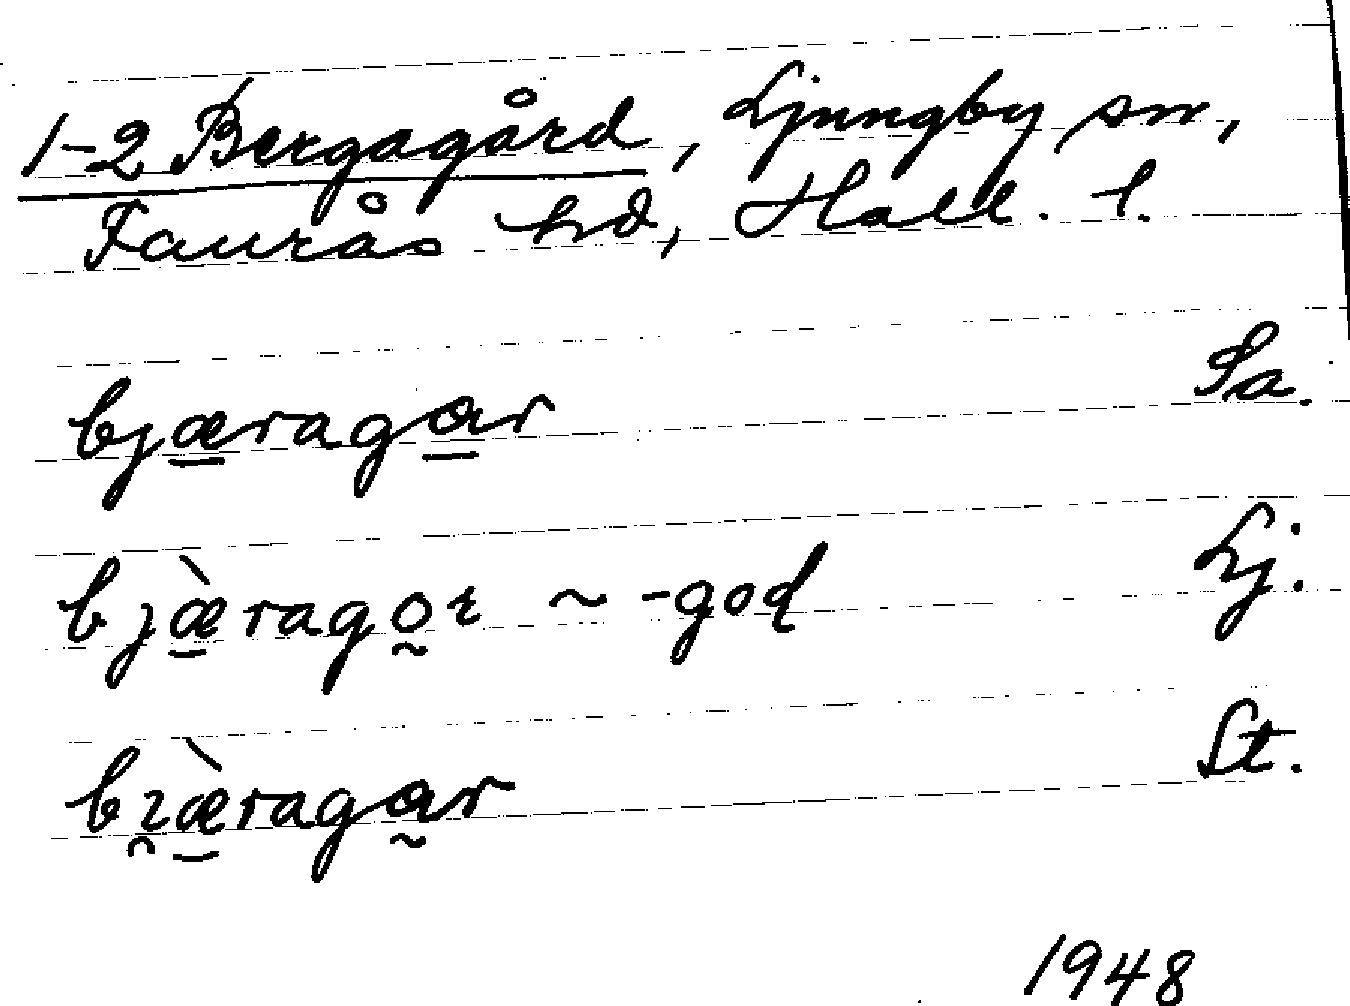 1-2 Bergagård, Ljungby sn,
Faurås hd, Hall. l.
bjæragar Sa.
bjæ̀ragor ~ -god Lj.
bıæ̀ragar St.
1948